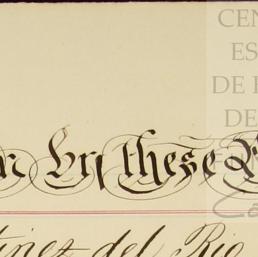 CEN
ES
DE
DE
by these
tinez del Rio